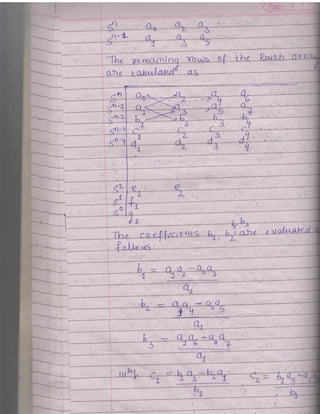 sⁿ a₀ a₂ a₃
sⁿ⁻¹ a₁ a₃ a₅
The remaining rows of the Routh array
are tabulated as
sⁿ a₀ a₂ a₄ a₆
sⁿ⁻¹ a₁ a₃ a₅ a₇
sⁿ⁻² b₁ b₂ b₃ b₄
sⁿ⁻³ c₁ c₂ c₃ c₄
sⁿ⁻⁴ d₁ d₂ d₃ d₄
s² e₁ e₂
s¹ f₁
s⁰ g₁
The coefficients b₁, b₂, b₃ are evaluated
follows
b₁ = a₁a₂ - a₀a₃
a₁
b₂ = a₁a₄ - a₀a₅
a₁
b₃ = a₁a₆ - a₀a₇
a₁
|||ly c₁ = b₁a₃ - b₂a₁ c₂ = b₁a₅ - a₁
b₁ b₁